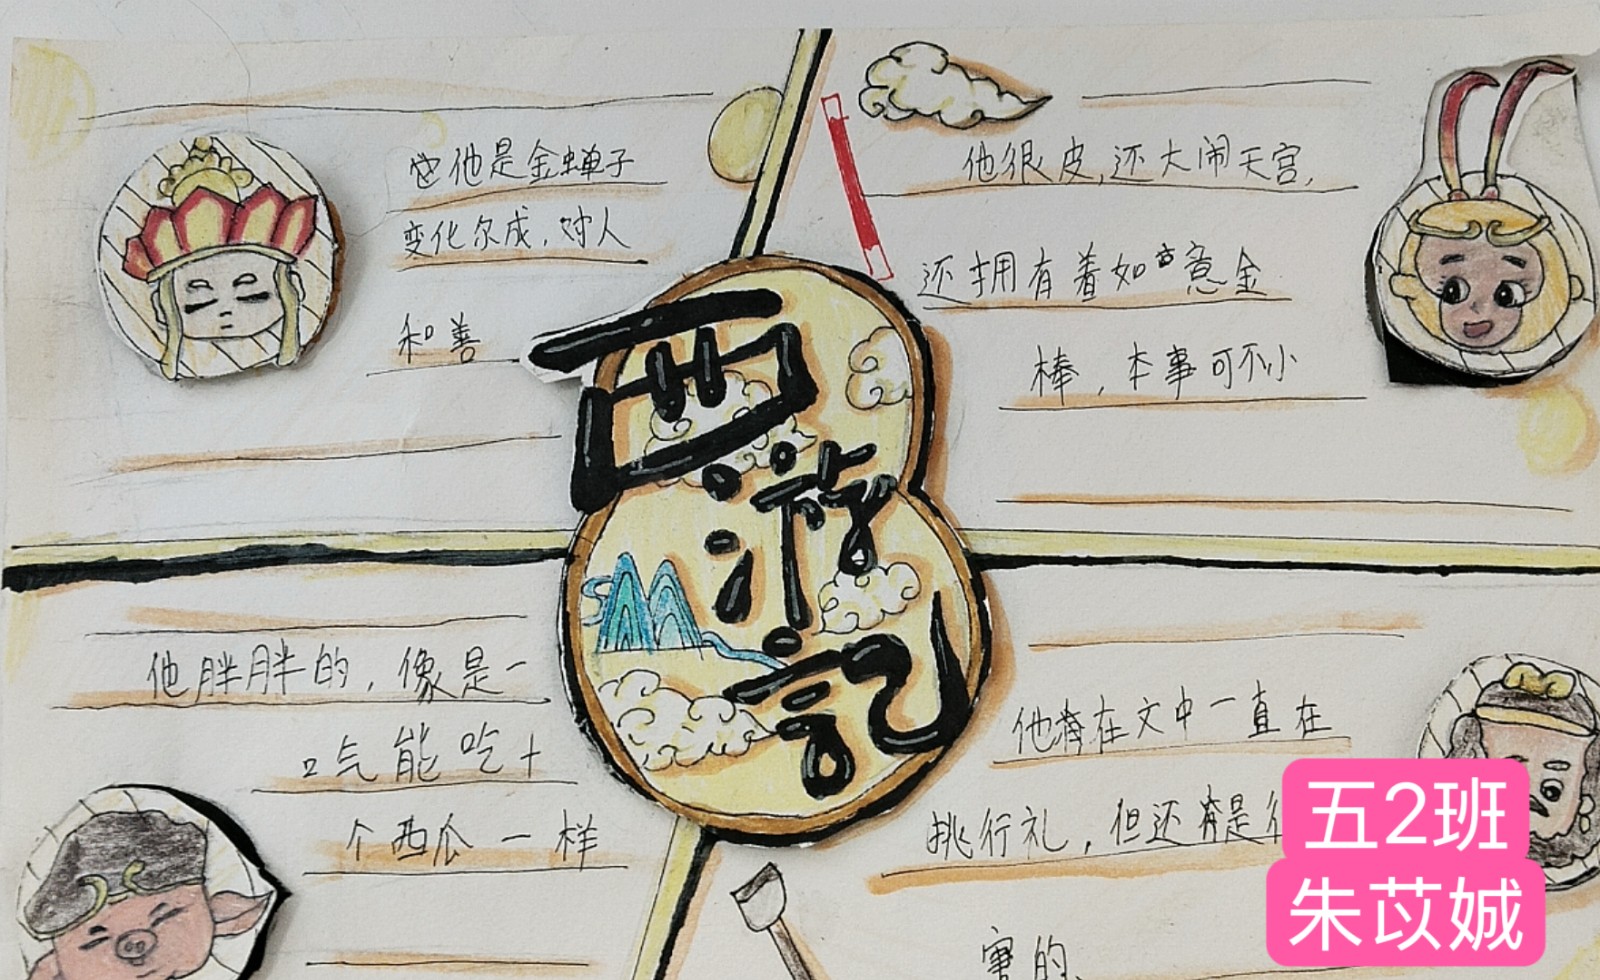 他是金蝉子
变化尔成,对人
和善
他很皮,还大闹天宫,
还拥有着如意金
棒,本事可不小
西游记
他胖胖的,像是一
口气能吃十
个西瓜一样
他在文中一直在
挑行礼,但还是
害的
五2班
朱苡娍